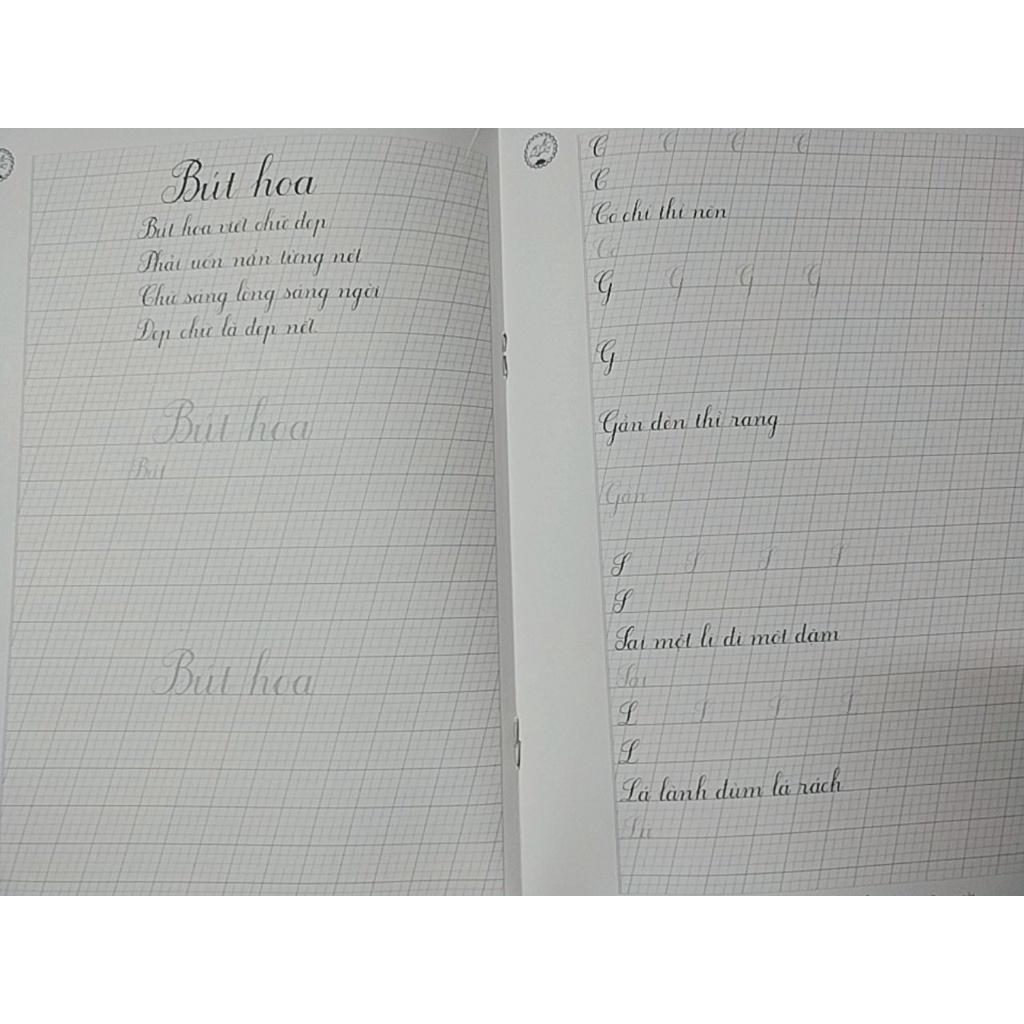 Bút hoa
Bút hoa viết chữ đẹp
Phải uốn nắn từng nét
Chữ sáng lòng sáng ngời
Đẹp chữ là đẹp nết
Bút hoa
Bút
Bút hoa
C C C C
C
Có chí thì nên
Có
G G G G
G
Gần đèn thì rạng
Gần
S S S S
S
Sai một li đi một dặm
Sai
L L L L
L
Lá lành đùm lá rách
Lá